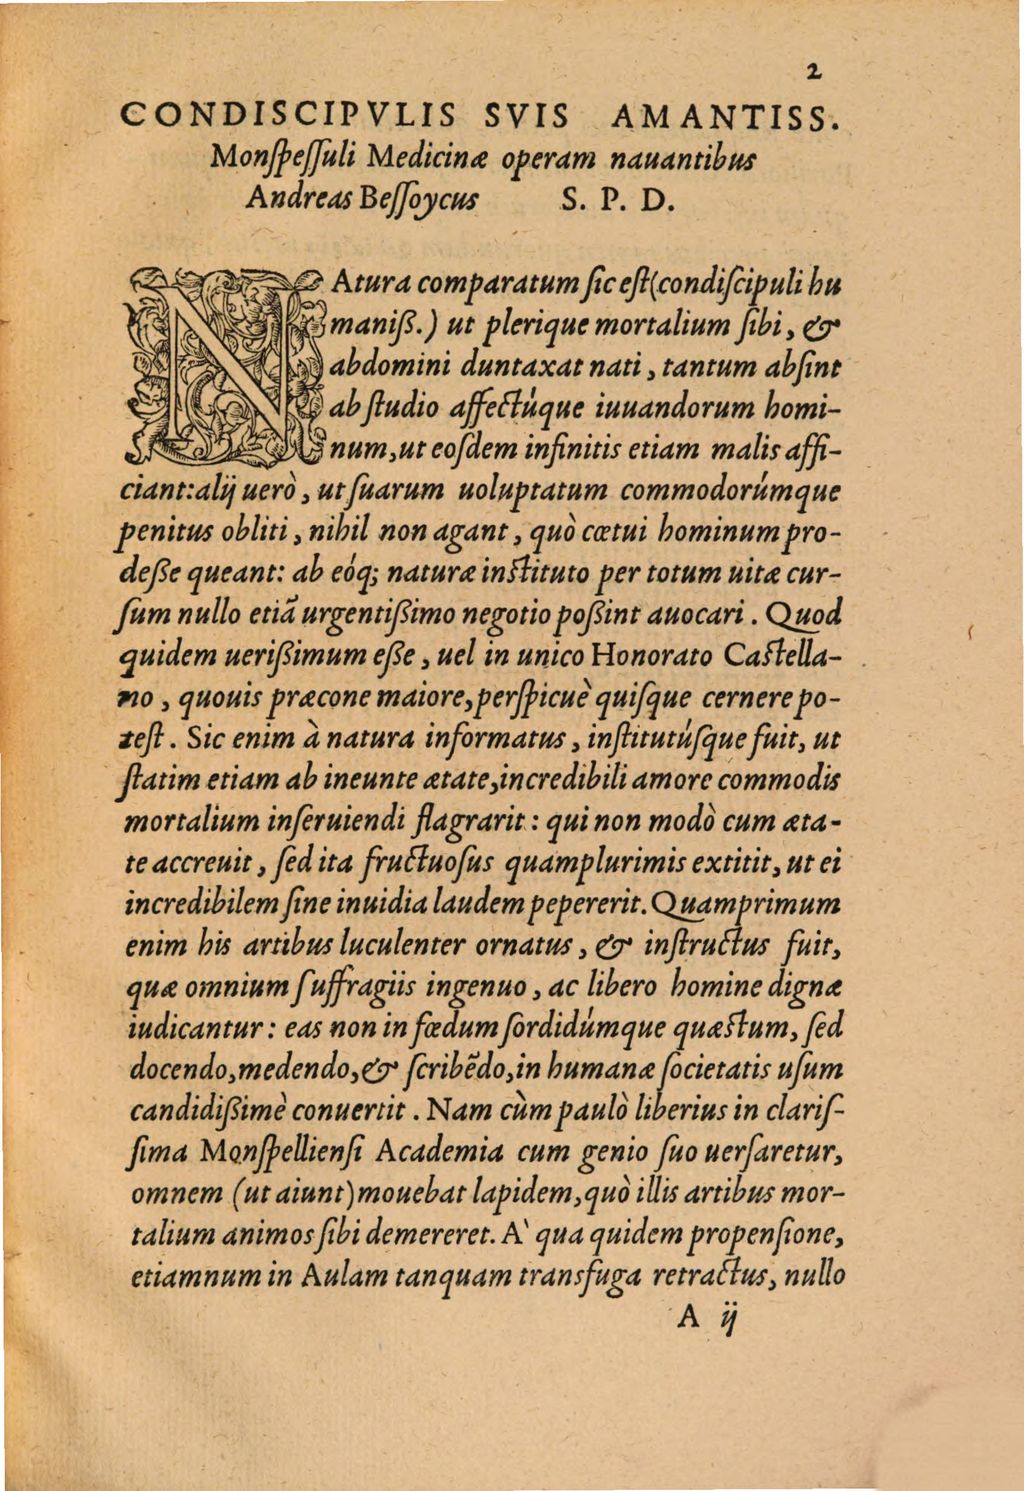 2
CONDISCIPVLIS SVIS AMANTISS.
Monſpeſſuli Medicinæ operam nauantibus
Andreas Beſſoycus S. P. D.
NAtura comparatum ſic eſt(condiſcipuli hu
maniß.) ut plerique mortalium ſibi, &
abdomini duntaxat nati, tantum abſint
ab ſtudio affectúque iuuandorum homi-
num,ut eoſdem infinitis etiam malis affi-
ciant:alij uerò, ut ſuarum uoluptatum commodorúmque
penitus obliti, nihil non agant, quò cœtui hominum pro-
deße queant: ab eóq; naturæ inſtituto per totum uitæ cur-
ſum nullo etiã urgentißimo negotio poßint auocari. Quod
quidem uerißimum eße, uel in unico Honorato Caſtella-
no, quouis præcone maiore,perſpicuè quiſque cernere po-
teſt. Sic enim à natura informatus, inſtitutúſque fuit, ut
ſtatim etiam ab ineunte ætate,incredibili amore commodis
mortalium inſeruiendi flagrarit: qui non modò cum æta-
te accreuit, ſed ita fructuoſus quamplurimis extitit, ut ei
incredibilem ſine inuidia laudem pepererit. Quamprimum
enim his artibus luculenter ornatus, & inſtructus fuit,
quæ omnium ſuffragiis ingenuo, ac libero homine dignæ
iudicantur: eas non in fœdum ſordidúmque quæſtum, ſed
docendo,medendo,& ſcribẽdo,in humanæ ſocietatis uſum
candidißimè conuertit. Nam cùm paulò liberius in clariſ-
ſima Monſpellienſi Academia cum genio ſuo uerſaretur,
omnem (ut aiunt) mouebat lapidem,quò illis artibus mor-
talium animos ſibi demereret. A` qua quidem propenſione,
etiamnum in Aulam tanquam transfuga retractus, nullo
A ij